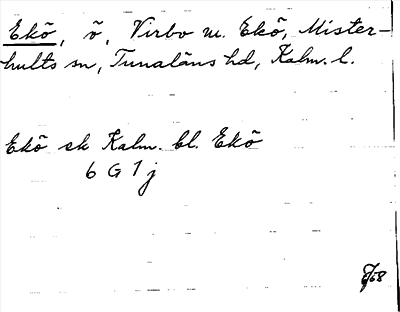 Ekö, ö, Virbo m. Ekö, Mister-
hults sn, Tunaläns hd, Kalm. l.
Ekö ek Kalm. bl. Ekö
6 G 1 j